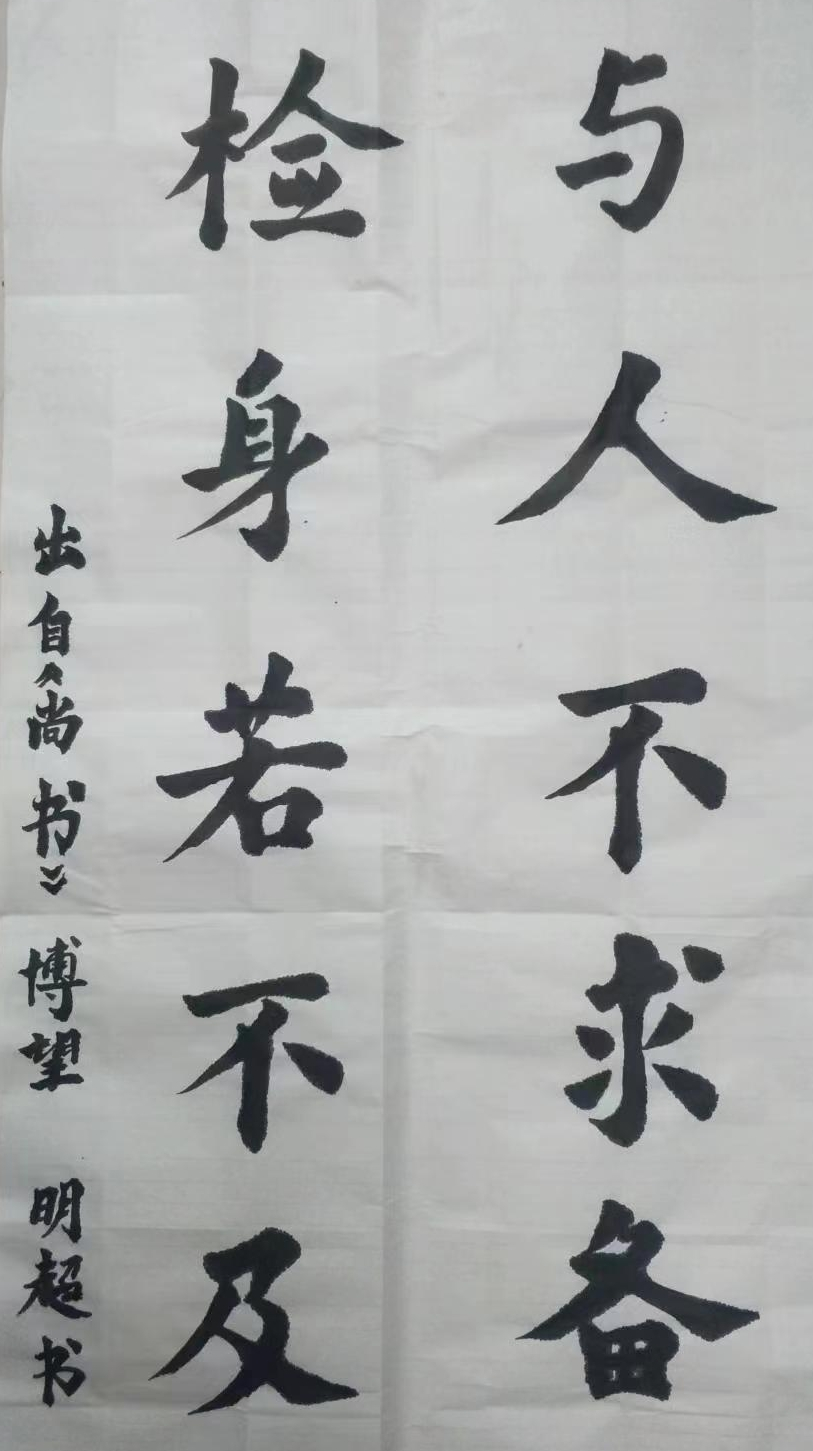 与人不求备
检身若不及
出自《尚书》博望 明超书